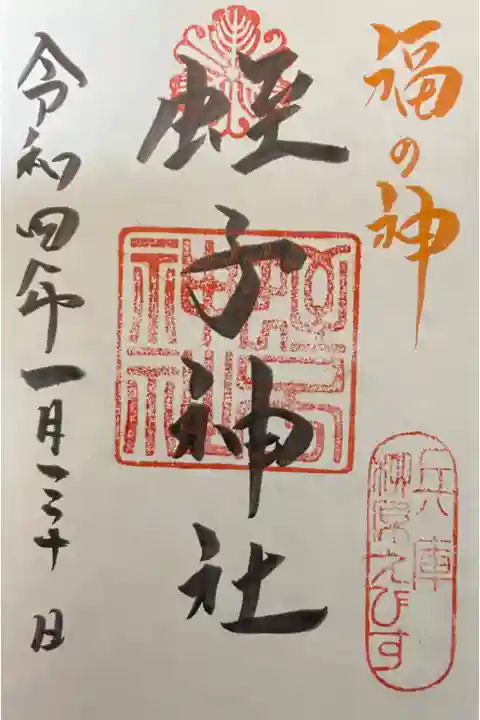 福の神
兵庫
柳原えびす
蛭子神社
蛭子神社
令和四年一月三十日